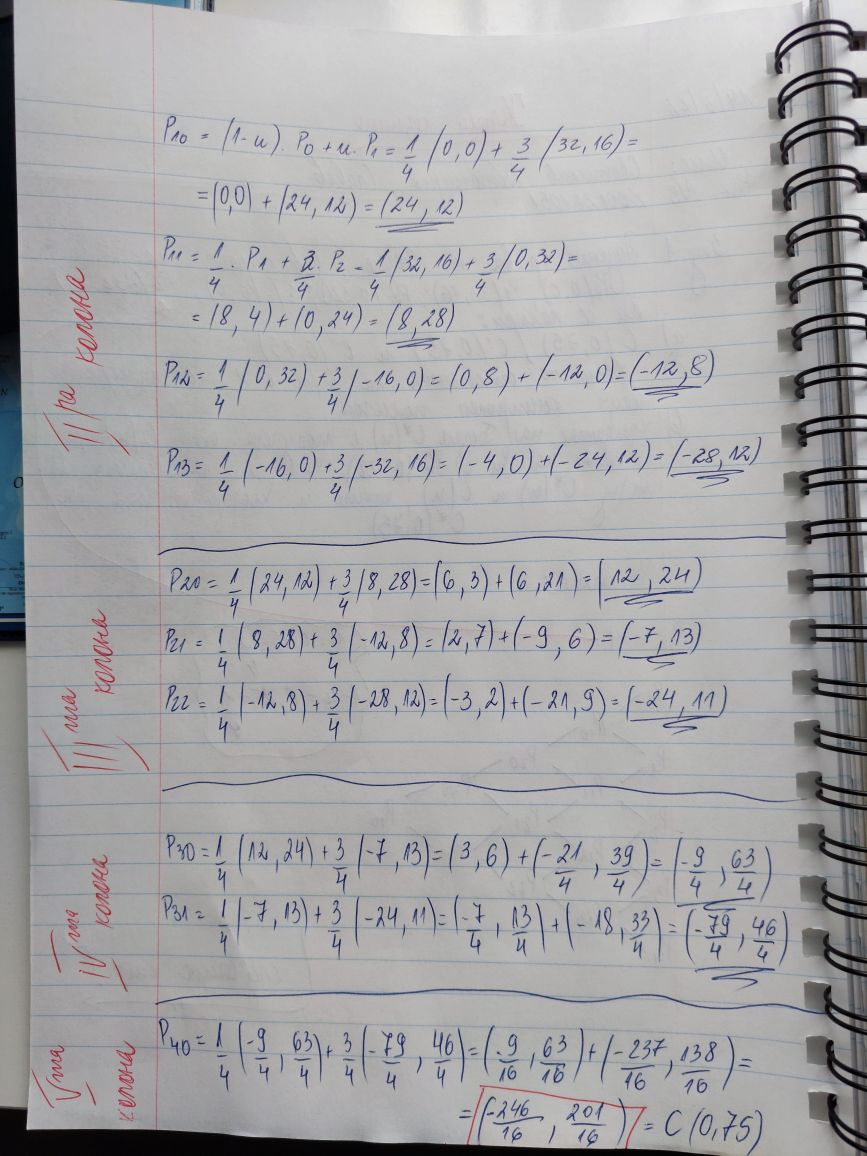 P10 = (1-u). P0 + u. P1 = 1/4 (0,0) + 3/4 (32,16) =
= (0,0) + (24,12) = (24,12)
P11 = 1/4 . P1 + 3/4 . P2 = 1/4 (32,16) + 3/4 (0,32) =
= (8,4) + (0,24) = (8,28)
P12 = 1/4 (0,32) + 3/4 (-16,0) = (0,8) + (-12,0) = (-12,8)
P13 = 1/4 (-16,0) + 3/4 (-32,16) = (-4,0) + (-24,12) = (-28,12)
II ра колона
P20 = 1/4 (24,12) + 3/4 (8,28) = (6,3) + (6,21) = (12,24)
P21 = 1/4 (8,28) + 3/4 (-12,8) = (2,7) + (-9,6) = (-7,13)
P22 = 1/4 (-12,8) + 3/4 (-28,12) = (-3,2) + (-21,9) = (-24,11)
III та колона
P30 = 1/4 (12,24) + 3/4 (-7,13) = (3,6) + (-21/4, 39/4) = (-9/4, 63/4)
P31 = 1/4 (-7,13) + 3/4 (-24,11) = (-7/4, 13/4) + (-18, 33/4) = (-79/4, 46/4)
IV та колона
P40 = 1/4 (-9/4, 63/4) + 3/4 (-79/4, 46/4) = (-9/16, 63/16) + (-237/16, 138/16) =
= (-246/16, 201/16) = C(0,75)
V та колона